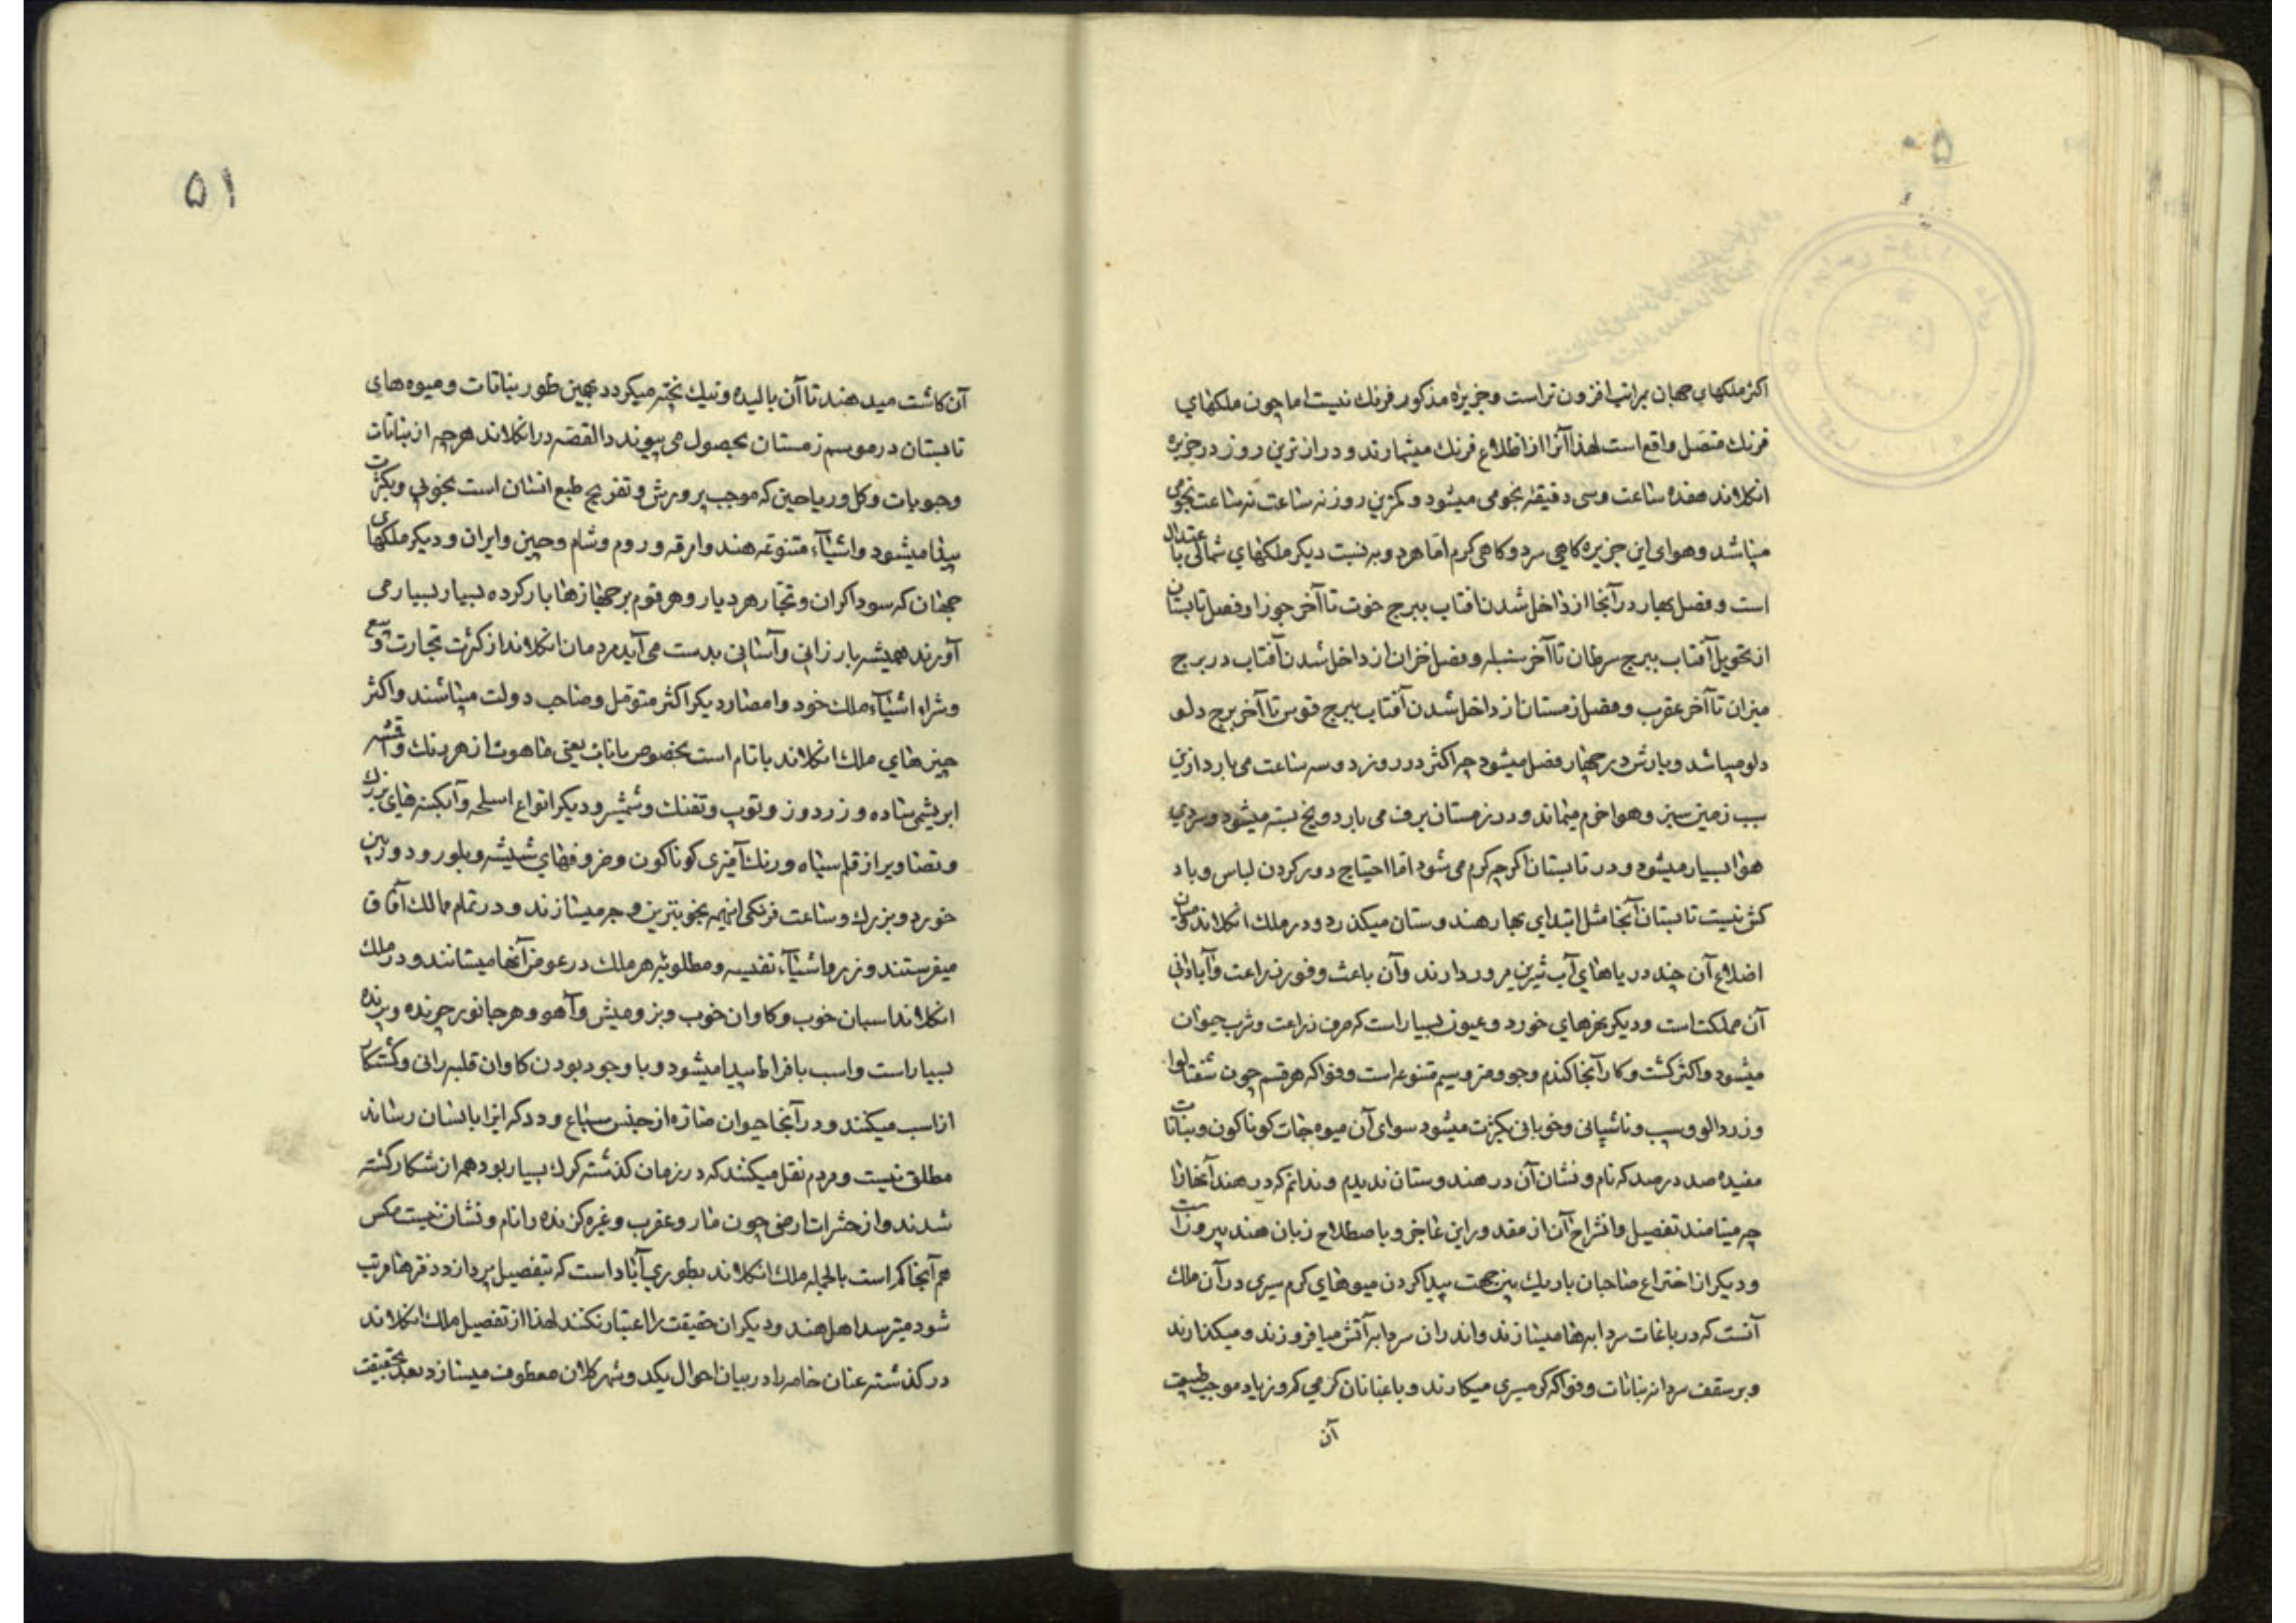 ۵۰
اکثر ملکهای جهان بمراتب افزون تر است و جزیره مذکور فرنک نیست اما چون ملکهای
فرنک متصل واقع است لهذا آنرا از اظلاع فرنک میشمارند و درازترین روز در جزیره
انکلاند هفده ساعت و سی دقیقه نجومی میشود و کمترین روز نه ساعت نه ساعت نجومی
میباشد و هوای این جزیره کاهی سرد و کاهی کرم اما هر دو به نسبت دیکر ملکهای شمالی با عتدال
است و فصل بهار در آنجا از داخل شدن افتاب ببرج حوت تا آخر جوزا و فصل تابستان
از تحویل آفتاب ببرج سرطان تا آخر سنبله و فصل خزان از داخل شدن آفتاب در برج
میزان تا آخر عقرب و فصل زمستان از داخل شدن آفتاب ببرج قوس تا آخر برج دلو
دلو میباشد و بارش در چهار فصل میشود چه اکثر در روز دو سه ساعت می بارد ازین
سبب زمین سبز و هوا خرم میماند و در زمستان برف می بارد و یخ بسته میشود و سردی
هوا بسیار میشود و در تابستان اکرچه کرم می شود اما احتیاج دور کردن لباس و باد
کش نیست تابستان آنجا مثل ابتدای بهار هندوستان میکذرد و در ملک انکلاند
اضلاع آن چند دریاهای آب شیرین مرور دارند و آن باعث وفور زراعت و آبادانی
آن مملکت است و دیکر نهرهای خورد و عیون بسیار است که صرف زراعت و شرب حیوان
میشود و اکثر کشت و کار آنجا کندم و جو و متنوعه است و فواکه هر قسم چون شفتالو
و زردالو و سیب و ناشپاتی و خوبانی بکثرت میشود سوای آن میوه جات کوناکون و نباتات
مفیده صد در صد که نام و نشان آن در هندوستان ندیدم و ندانم که در هند آنها را
چه مینامند تفصیل و انشراح آن از مقدور این عاجز و با صطلاح زبان هند بیرونست
و دیکر از اختراع صاحبان باریک بین جهت پیدا کردن میوهای کرم سیری در آن ملک
آنست که در باغات سردابه ها میسازند و اندران سردابه آتش میافروزند و میکذارند
و بر سقف سردابه نباتات و فواکه کرمسیری میکارند و باغبانان کرمی کم و زیاد موجب طبیعت
آن
۵۱
آن کاشت میدهند تا آن بالیده و نیک پخته میکردد بهمین طور نباتات و میوه های
تابستان در موسم زمستان بحصول می پیوندد القصه در انکلاند هرچه از نباتات
و حبوبات و کل و ریاحین که موجب پرورش و تفریح طبع انسان است بخوبی و بکثرت
پیدا میشود و اشیاء متنوعه هند و امرقه و روم و شام و چین و ایران و دیکر ملکهای
جهان که سوداکران و تجار هر دیار و هر قوم بر جهازها بار کرده بسیار بسیار می
آورند همیشه بارزانی و آسانی بدست می آید مردمان انکلاند از کثرت تجارت و بیع
و شراء اشیاء ملک خود و امصار دیکر اکثر متومل و صاحب دولت میباشند و اکثر
چیزهای ملک انکلاند با نام است بخصوص بانات یعنی ماهوت از هر رنک و اقمشه
ابریشمی ساده و زردوز و توپ و تفنک و شمشیر و دیکر انواع اسلحه و آبکینه های بزرک
و تصاویر از قلم سیاه و رنک آمیزی کوناکون و ظروفهای شیشه و بلور و دوربین
خورد و بزرک و ساعت فرنکی اینهمه بخوبترین وجه میسازند و در تمام ممالک آفاق
میفرستند و زر و اشیاء نفیسه و مطلوبه هر ملک در عوض آنها میستانند و در ملک
انکلاند اسبان خوب و کاوان خوب و بز و میش و آهو و هر جانور چرنده و پرنده
بسیار است و اسب بافراط پیدا میشود و با وجود بودن کاوان قلبه رانی و کشتکار
از اسب میکنند و در آنجا حیوان ضاره از جنس سباع و دد که ایذا بانسان رساند
مطلق نیست و مردم نقل میکنند که در زمان کذشته کرک بسیار بود همه از شکار کشته
شدند و از حشرات ارضی چون مار و عقرب و غیره کزنده را نام و نشان نیست مکس
هم آنجا کم است بالجمله ملک انکلاند بطوری آباد است که بتفصیل پردازد دفترها مرتب
شود میترسد اهل هند و دیکران حقیقت را اعتبار نکنند لهذا از تفصیل ملک انکلاند
در کذشته عنان خامه را در بیان احوال یکدو شهر کلان معطوف میسازد بعد بحقیقت